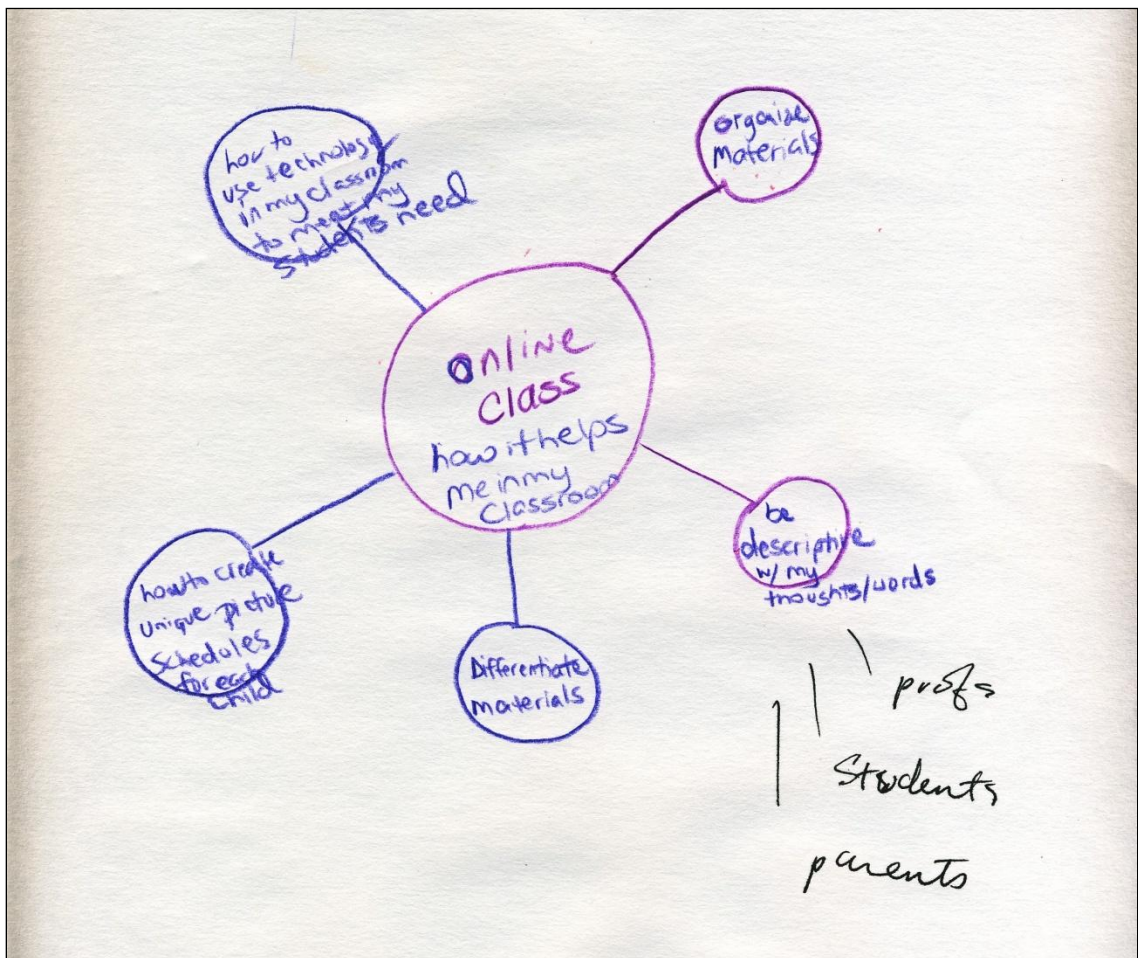 how to
use technology
in my classroom
to meet my
students need
organize
materials
online
class
how it helps
me in my
classroom
be
descriptive
w/ my
thoughts/words
how to create
unique picture
schedules
for each
child
Differentiate
materials
profs
Students
parents